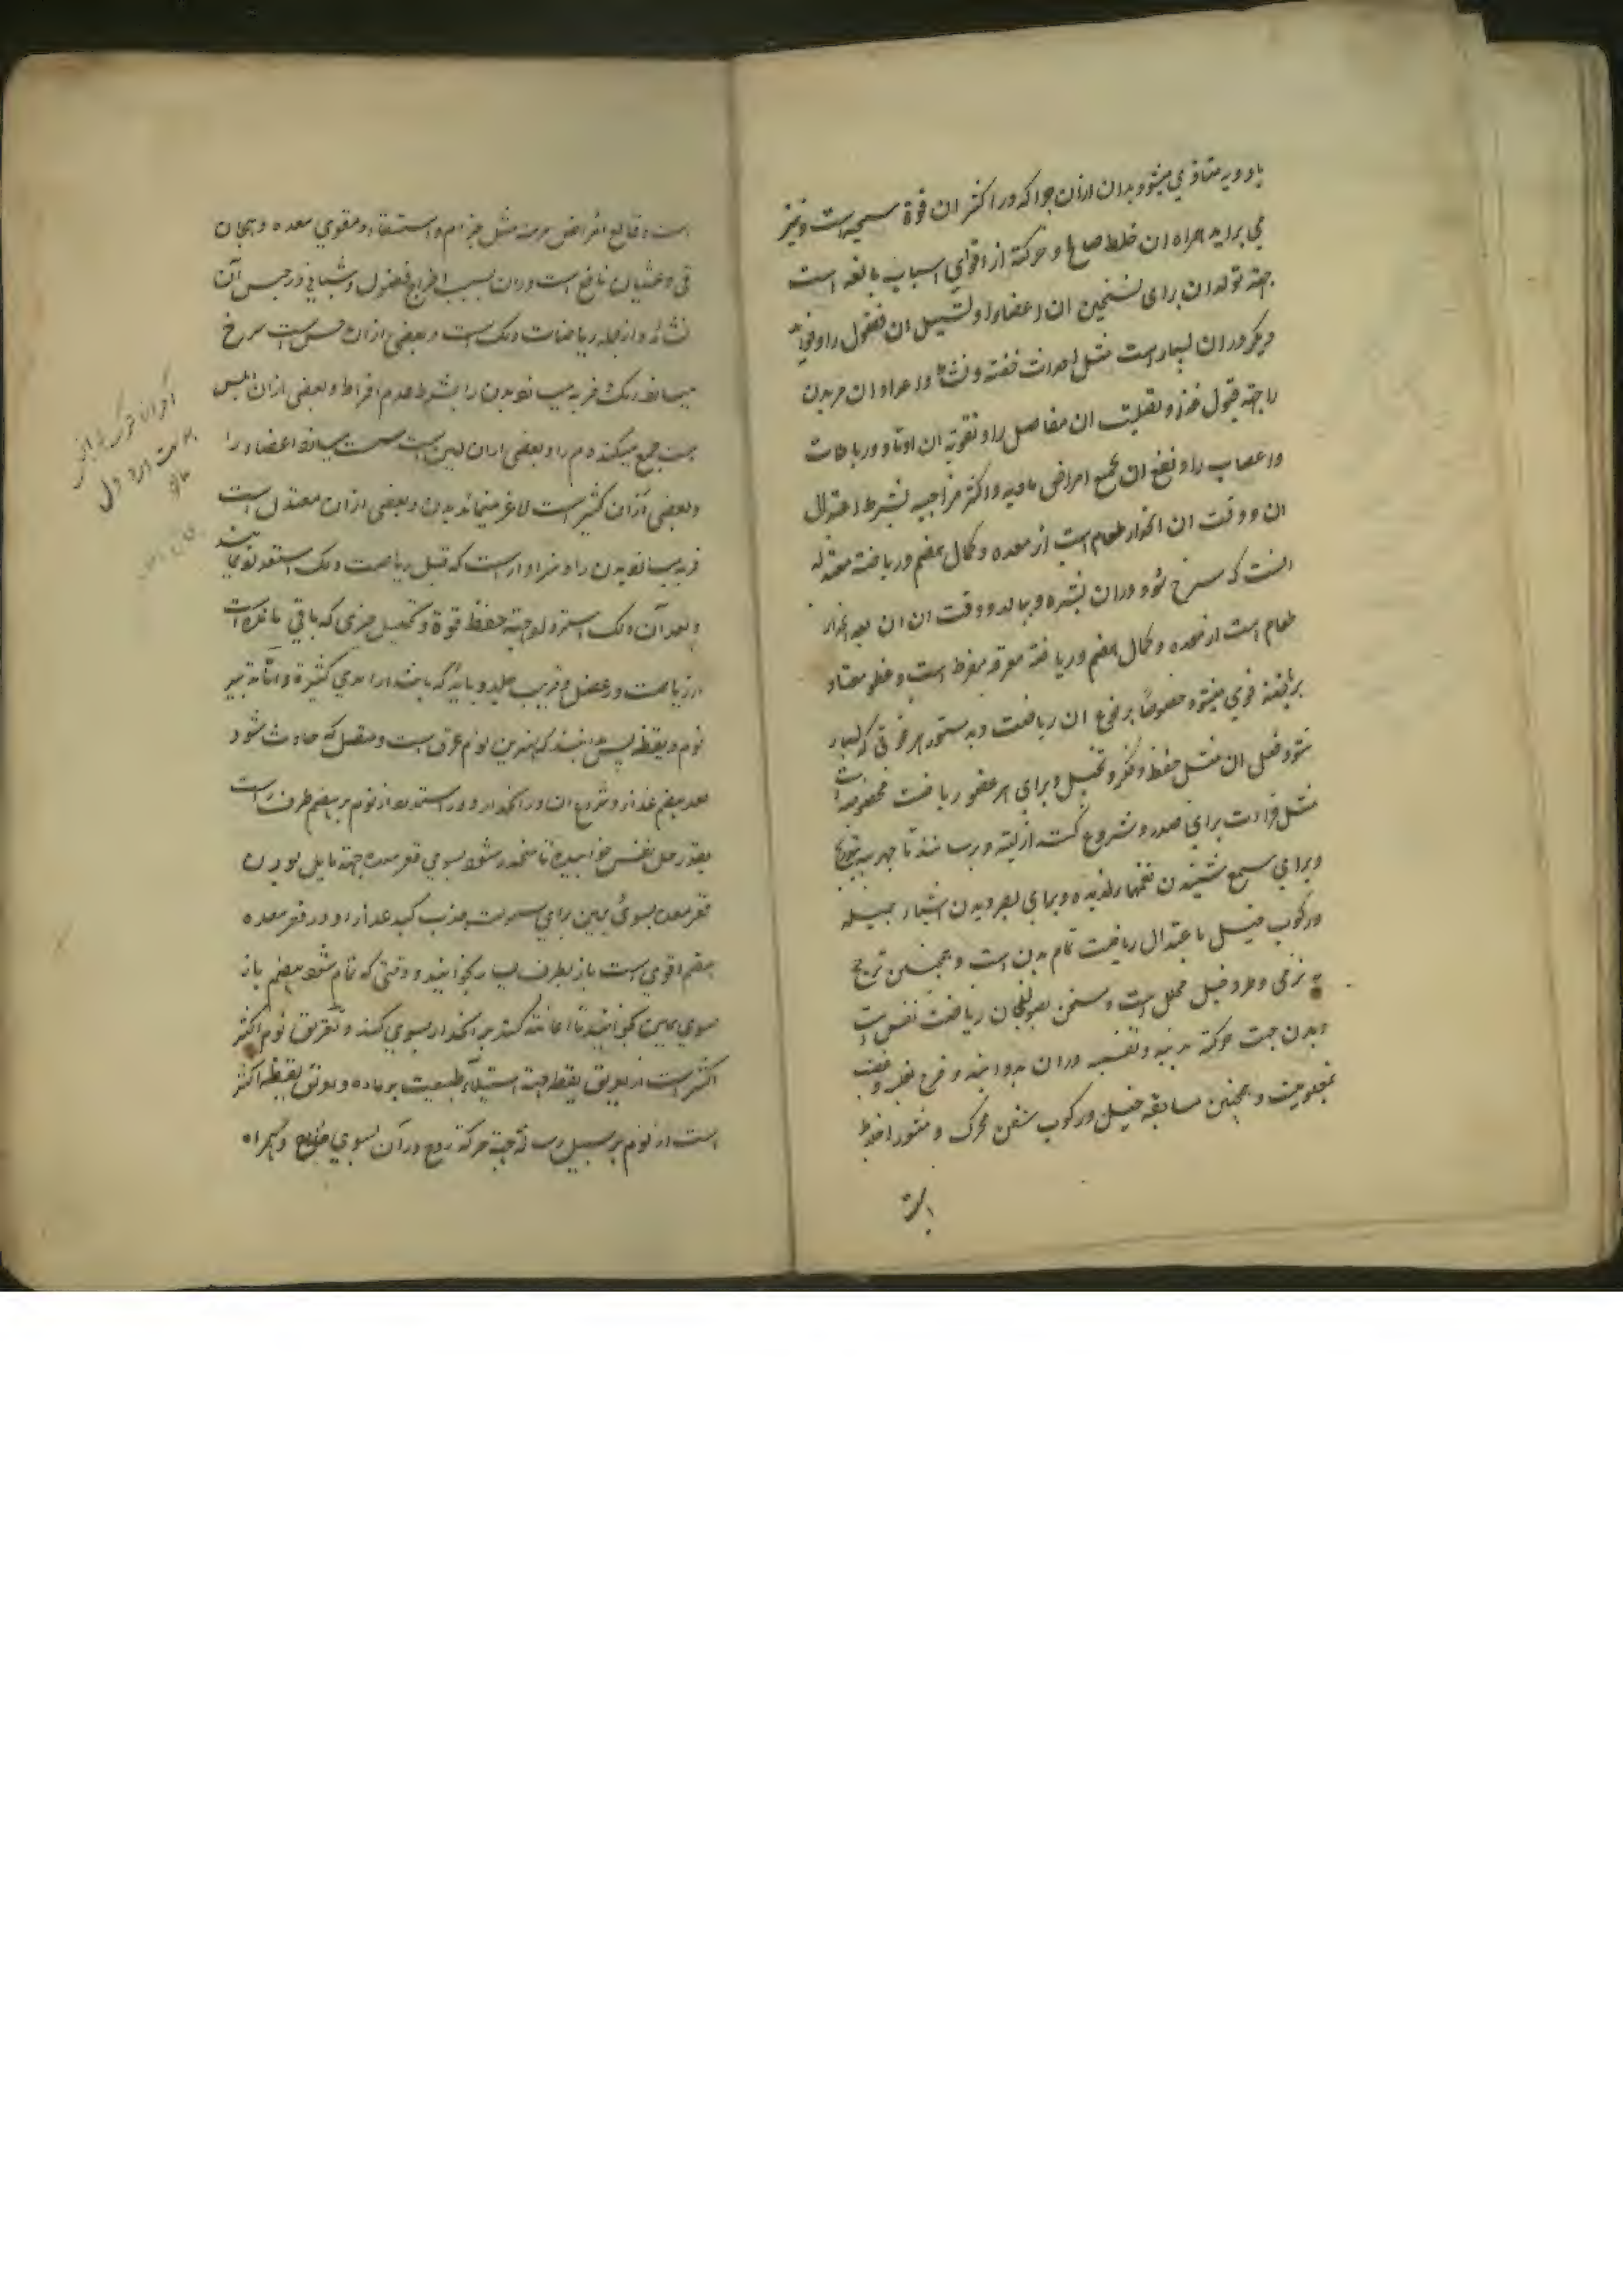 بادویه متاذی میشود بدن ازان جرا که در اکثر ان قوة سمیه است و نیز
می براید همراه ان خلط صالح و حرکة از اقوای اسباب مانعه است
جهة تولد ان برای تسخین ان اعضا را و تسییل ان فضول را و فواید
دیکر در ان بسیار است مثل احداث خفته و نشاط و اعداد ان مر بدن
را جهة قبول غذا و تصلیب ان مفاصل را و تقویة ان اوتار و رباطات
و اعصاب را و نفع ان بجمیع امراض مادیه و اکثر مزاجیه بشرط اعتدال
ان و وقت ان انحدار طعام است از معده و کمال هضم و ریاضة معتدله
انست که سرخ شود دران بشره و وقت ان بعد انحدار
طعام است از معده و کمال هضم و ریاضة معرقه مفرط است و عضو معتاد
بریاضة قوی میشود خصوصا بر نوع ان ریاضت و بدستور هر قوتی که بسیار
شود فعل ان مثل حفظ و فکر و تخیل و برای هر عضو ریاضت مخصوصه است
مثل قراءت برای صدر و شروع کنند از پست و رسانند تا جهر بتدریج
و برای سمع شنیدن نغمهاء لذیذه و برای بصر دیدن اشیاء جمیله
و رکوب خیل باعتدال ریاضت تمام بدن است و همچنین ترجح
به نرمی و طرد خیل محلل است و مسخن بصولجان ریاضت نفس است
و بدن جهت حرکة بدنیه و نفسیه دران و فرح بغلبه و غضب
بمغلوبیت و همچنین مسابقه خیل و رکوب سفن محرک و مثور اخلاط
است
است و قالع امراض مزمنه مثل جذام و استسقاء و مقوی معده و هیجان
قی و غثیان نافع است دران بسبب اخراج فضول و شتابی در حبس آن
نشاید و از جمله ریاضات دلک است و بعضی ازان خشن است سرخ
میسازد رنک و فربه میسازد بدن را بشرط عدم افراط و بعضی ازان املس
است جمع میکند دم را و بعضی ازان لین است سست میسازد اعضاء را
و بعضی ازان کثیر است لاغر مینماید بدن و بعضی ازان معتدل است
فربه میسازد بدن را و سزاوار است که قبل ریاضت دلک استعداد نمایند
و بعد آن دلک استرداد جهة حفظ قوة و تحلیل چیزی که باقی مانده است
از ریاضت در عضل و قریب جلد و باید که باشد ایدی کثیرة و اما تدبیر
نوم و یقظه پس بدانند که بهترین نوم غرق است و متصل که حادث شود
بعد هضم غذا و شروع ان در انحدار و در استمداد از نوم بر هضم طرف راست
بقدر نفس خوابیده تا منحدر شود بسوی قعر معده جهة مایل بودن
قعر معده بسوی یمین برای سهولت جذب کبد غذا را و در قعر معده
هضم اقوی است باز بطرف یسار بخوابند و وقتی که تمام شود هضم باز
بسوی یمین بخوابند تا اعانة کند بر انحدار بسوی کبد و تعریق نوم اکثر
اکثر است از تعریق یقظه جهة استیلاء طبیعت بر ماده و تعریق یقظه اکثر
است از نوم بر سبیل جهة حرکة روح دران بسوی خارج و همراه